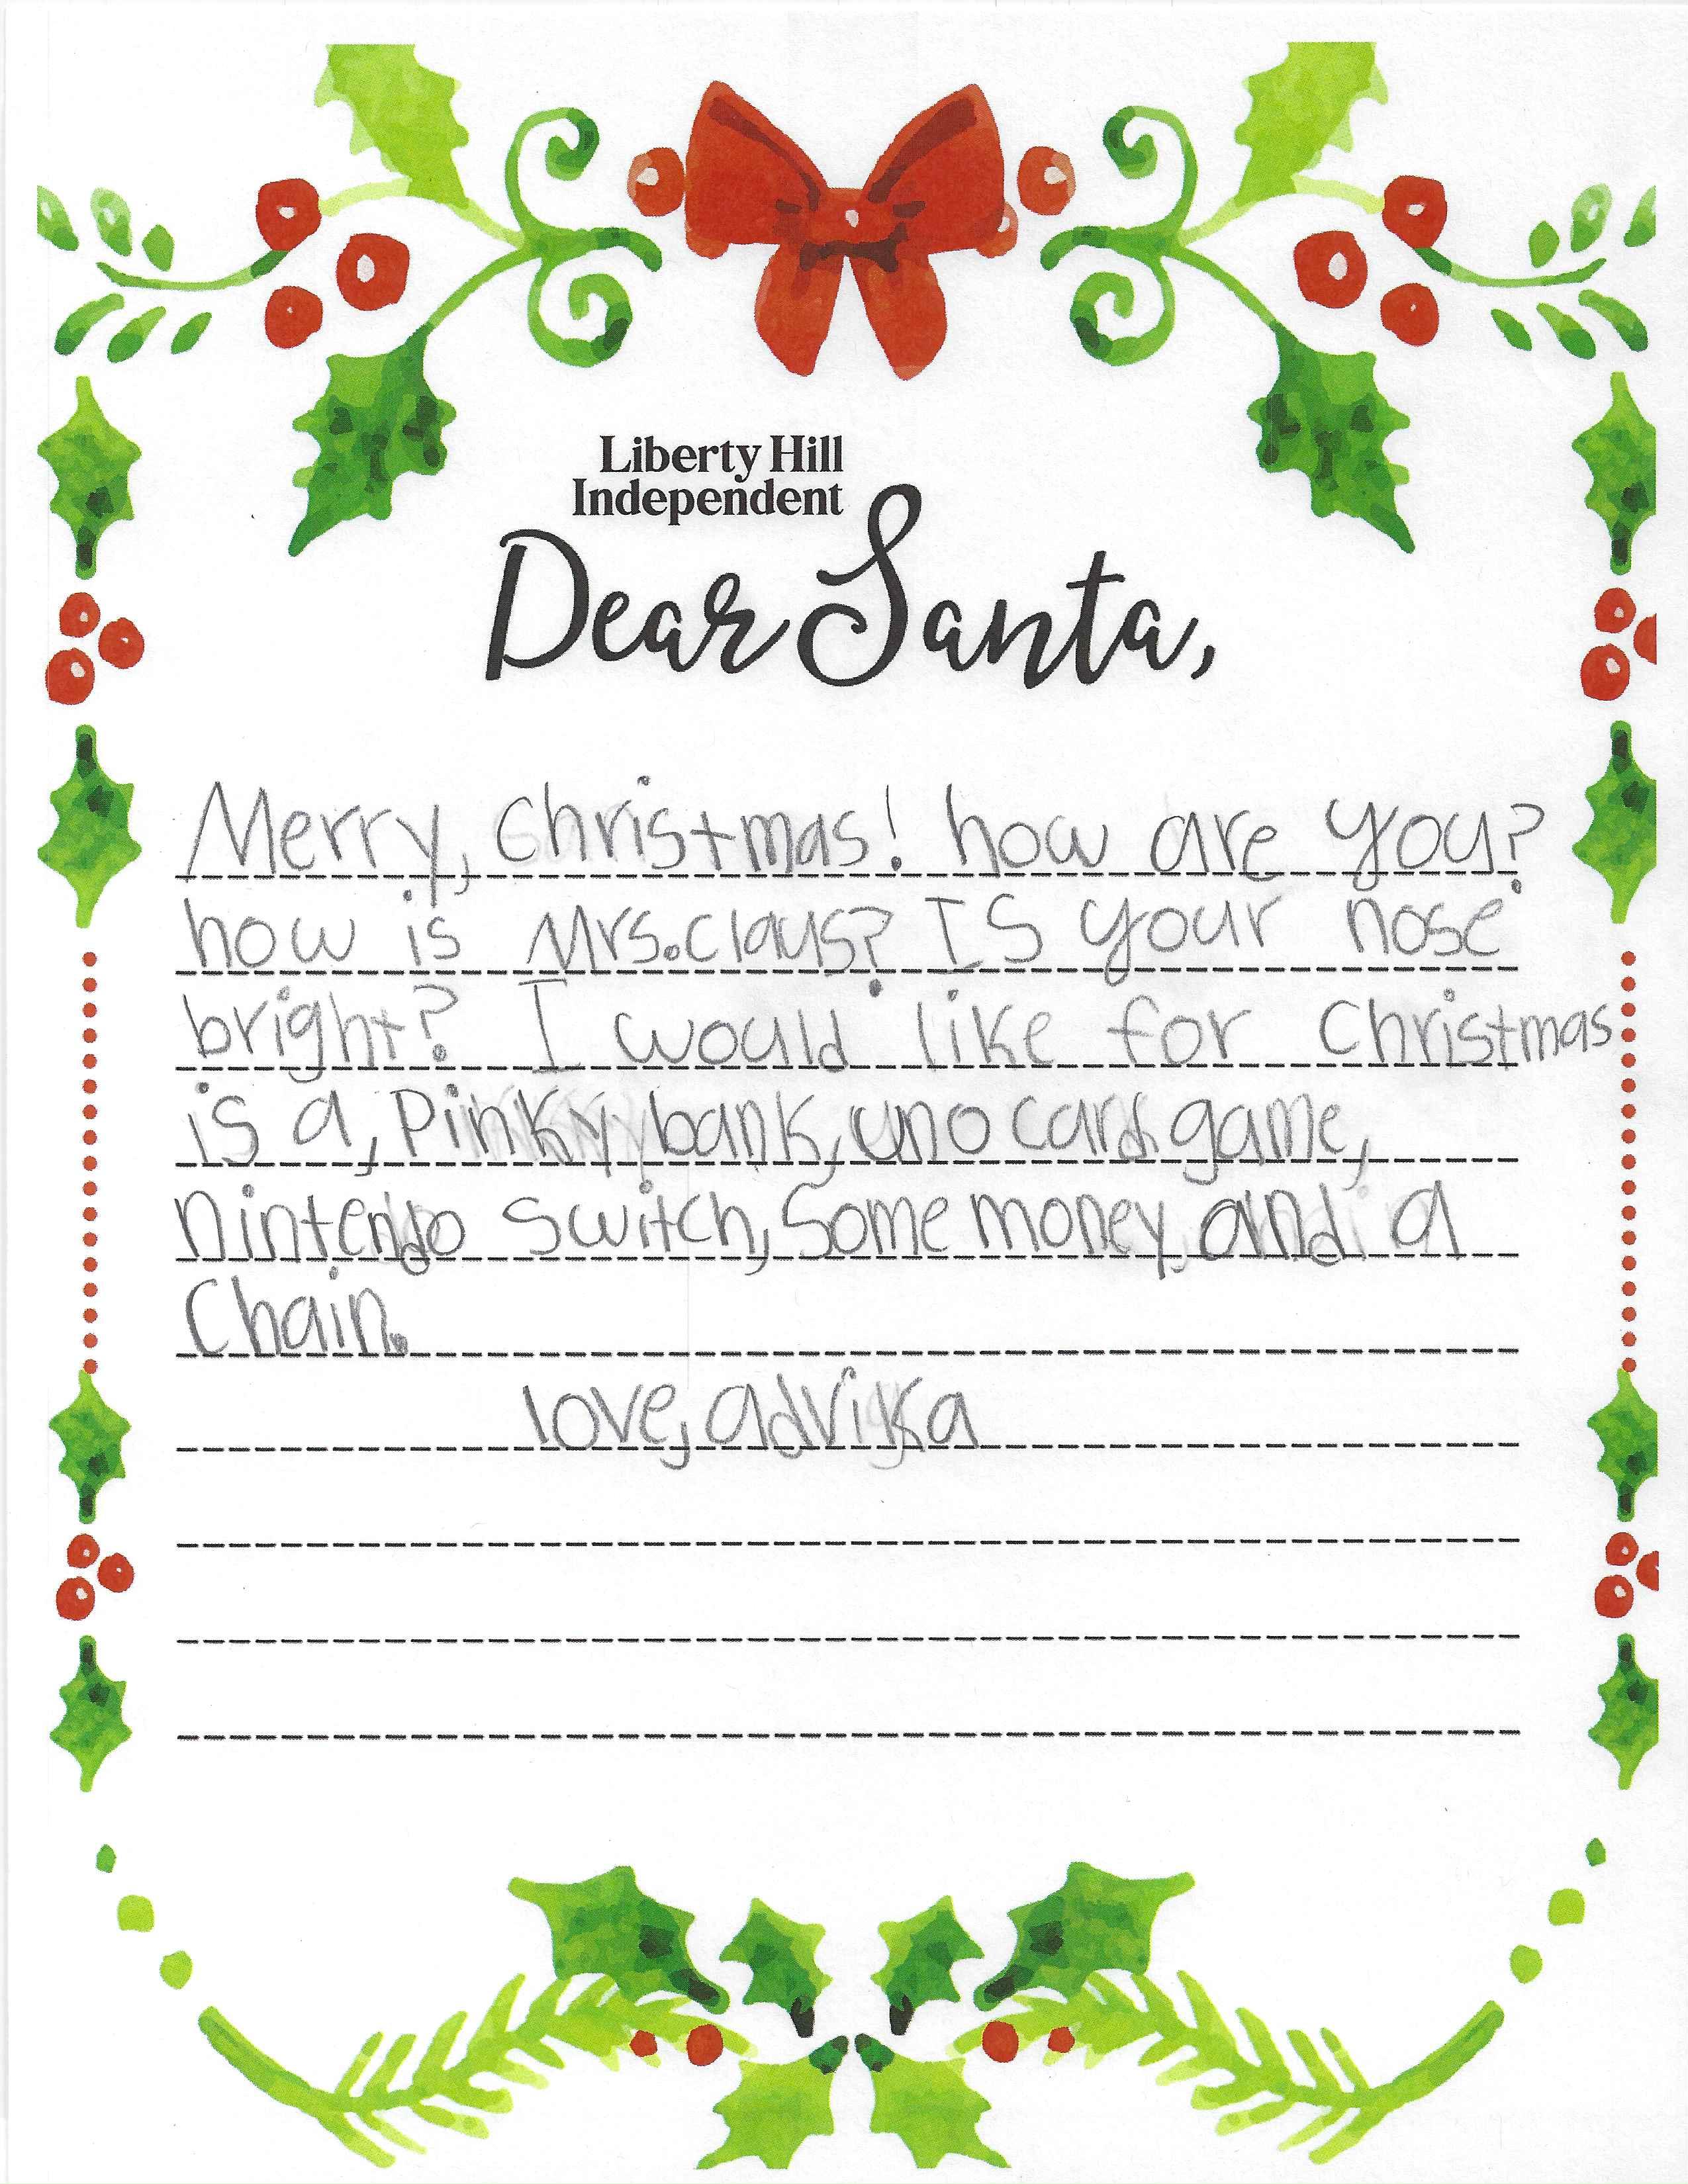 Liberty Hill
Independent
Dear Santa,
Merry, christmas! how are you?
how is Mrs.claus? IS your nose
bright? I would like for Christmas
is a, Pinky bank, uno card game,
nintendo switch, Some money, and a
Chain.
love, advika